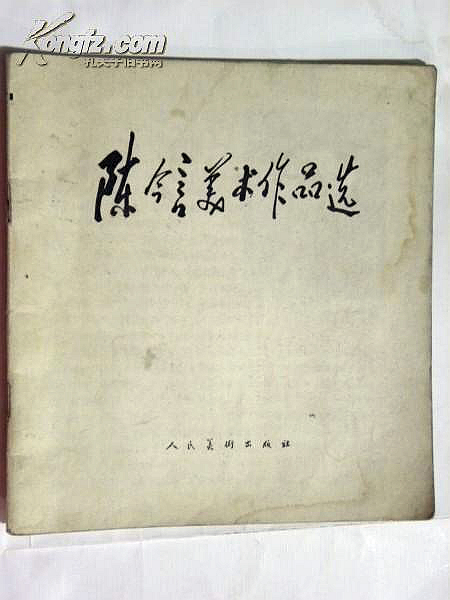 Kongfz.com
孔夫子旧书网
陈今言美术作品选
人民美術出版社